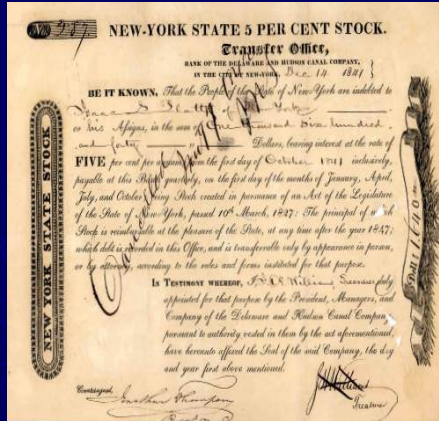 NEW-YORK STATE 5 PER CENT STOCK.
Transfer Office,
BANK OF THE DELAWARE AND HUDSON CANAL COMPANY,
IN THE CITY OF NEW-YORK, Dec 14 1841
BE IT KNOWN, That the People of the State of New-York are indebted to
Isaac G. of New York
or his Assigns, in the sum of One thousand Six hundred
and forty Dollars, bearing interest at the rate of
FIVE per cent per annum from the first day of October 1841 inclusively,
payable at this Bank quarterly, on the first day of the months of January, April,
July, and October being Stock created in pursuance of an Act of the Legislature
of the State of New-York, passed 10th March, 1827; The principal of which
Stock is reimbursable at the pleasure of the State, at any time after the year 1847;
which debt is recorded in this Office, and is transferrable only by appearance in person,
or by attorney, according to the rules and forms instituted for that purpose.
IN TESTIMONY WHEREOF, Williams, Treasurer duly
appointed for that purpose by the President, Managers, and
Company of the Delaware and Hudson Canal Company
pursuant to authority vested in them by the act aforementioned,
have hereunto affixed the Seal of the said Company, the day
and year first above mentioned.
Countersigned,
Jonathan Thompson
Williams
Treasurer
NEW YORK STATE STOCK
Cancelled